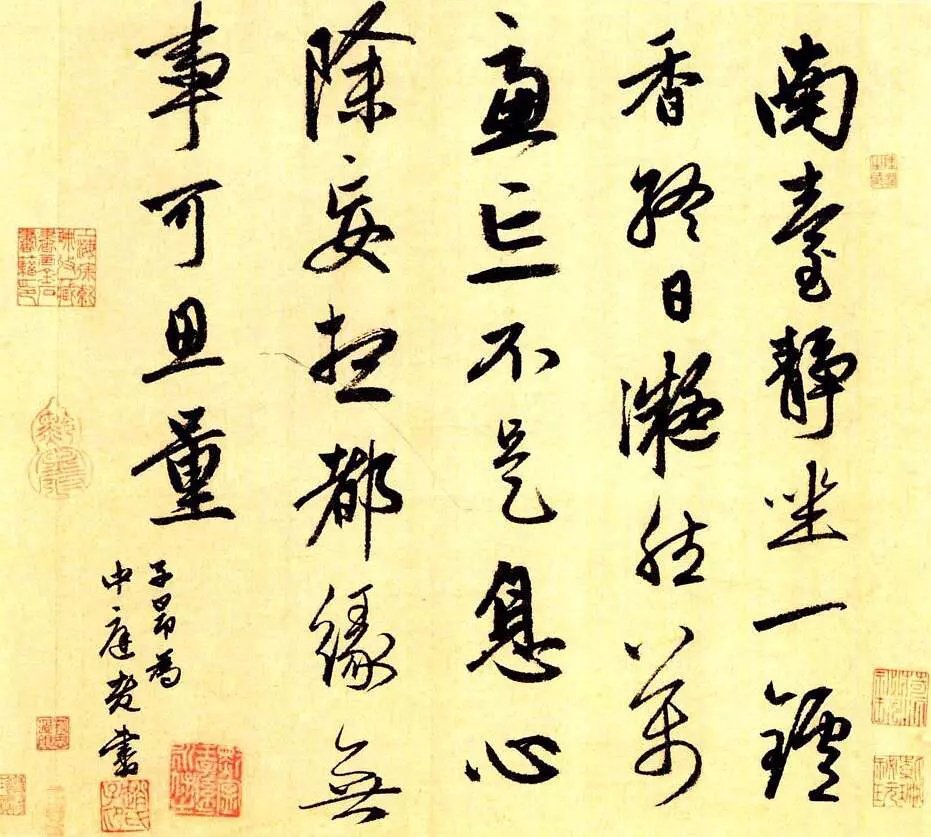 南臺靜坐一鑪
香終日凝然萬
慮亡不是息心
除妄想都緣無
事可思量
子昂為
中庭老書
趙氏子昂